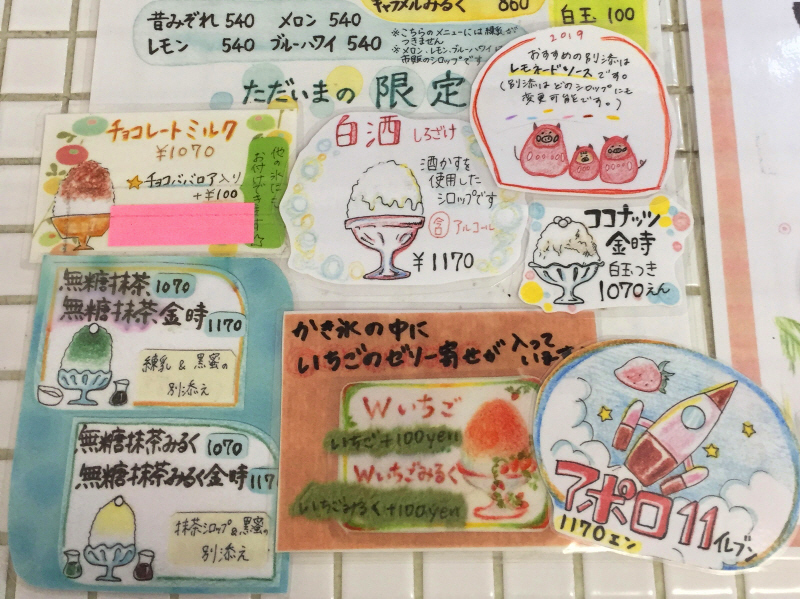 キャラメルみるく 860
昔みぞれ 540 メロン 540
レモン 540 ブルーハワイ 540
※こちらのメニューには練乳が
つきません
※メロン・レモン・ブルーハワイ
市販のシロップです
白玉 100
ただいまの 限定
2019
おすすめの別添は
レモネードソースです。
(別添はどのシロップにも
変更可能です。)
チョコレートミルク
¥1070
チョコババロア入り
+¥100
他の氷にも
お付けできます
白酒 しろざけ
酒かすを
使用した
シロップです
含 アルコール
¥1170
ココナッツ
金時
白玉つき
1070えん
無糖抹茶 1070
無糖抹茶金時 1170
練乳&黒蜜の
別添え
無糖抹茶みるく 1070
無糖抹茶みるく金時 117
抹茶シロップ&黒蜜の
別添え
かき氷の中に
いちごのゼリー寄せが入って
います
Wいちご
いちご+100yen
Wいちごみるく
いちごみるく+100yen
アポロ11
イレブン
1170エン